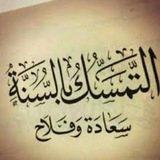 التمسك بالسنة
سعادة وفلاح